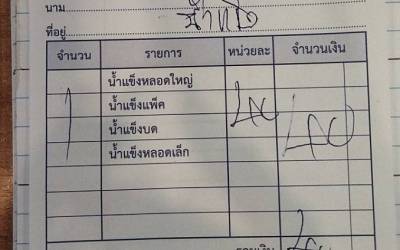 นาม
ที่อยู่
จำนวน รายการ หน่วยละ จำนวนเงิน
น้ำแข็งหลอดใหญ่
1 น้ำแข็งแพ็ค 40 40
น้ำแข็งบด
น้ำแข็งหลอดเล็ก
รวมเงิน 40